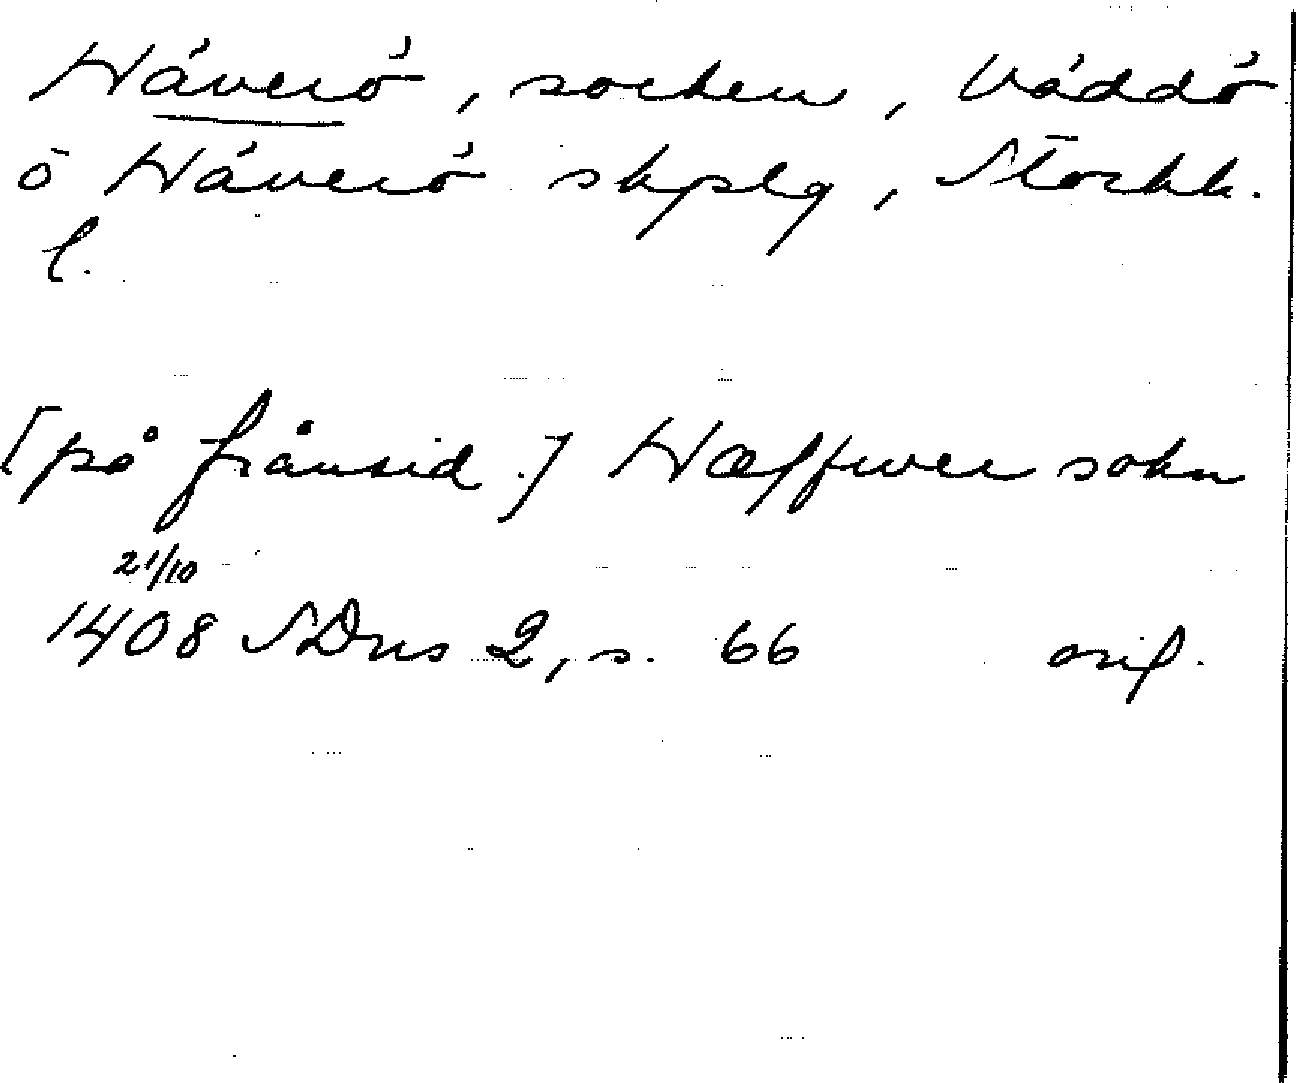 Häverö, socken, Väddö
o Häverö skplg, Stockh.
l.
[på frånsid.] Hæffwer sokn
21/10
1408 SDns 2, s. 66 orig.